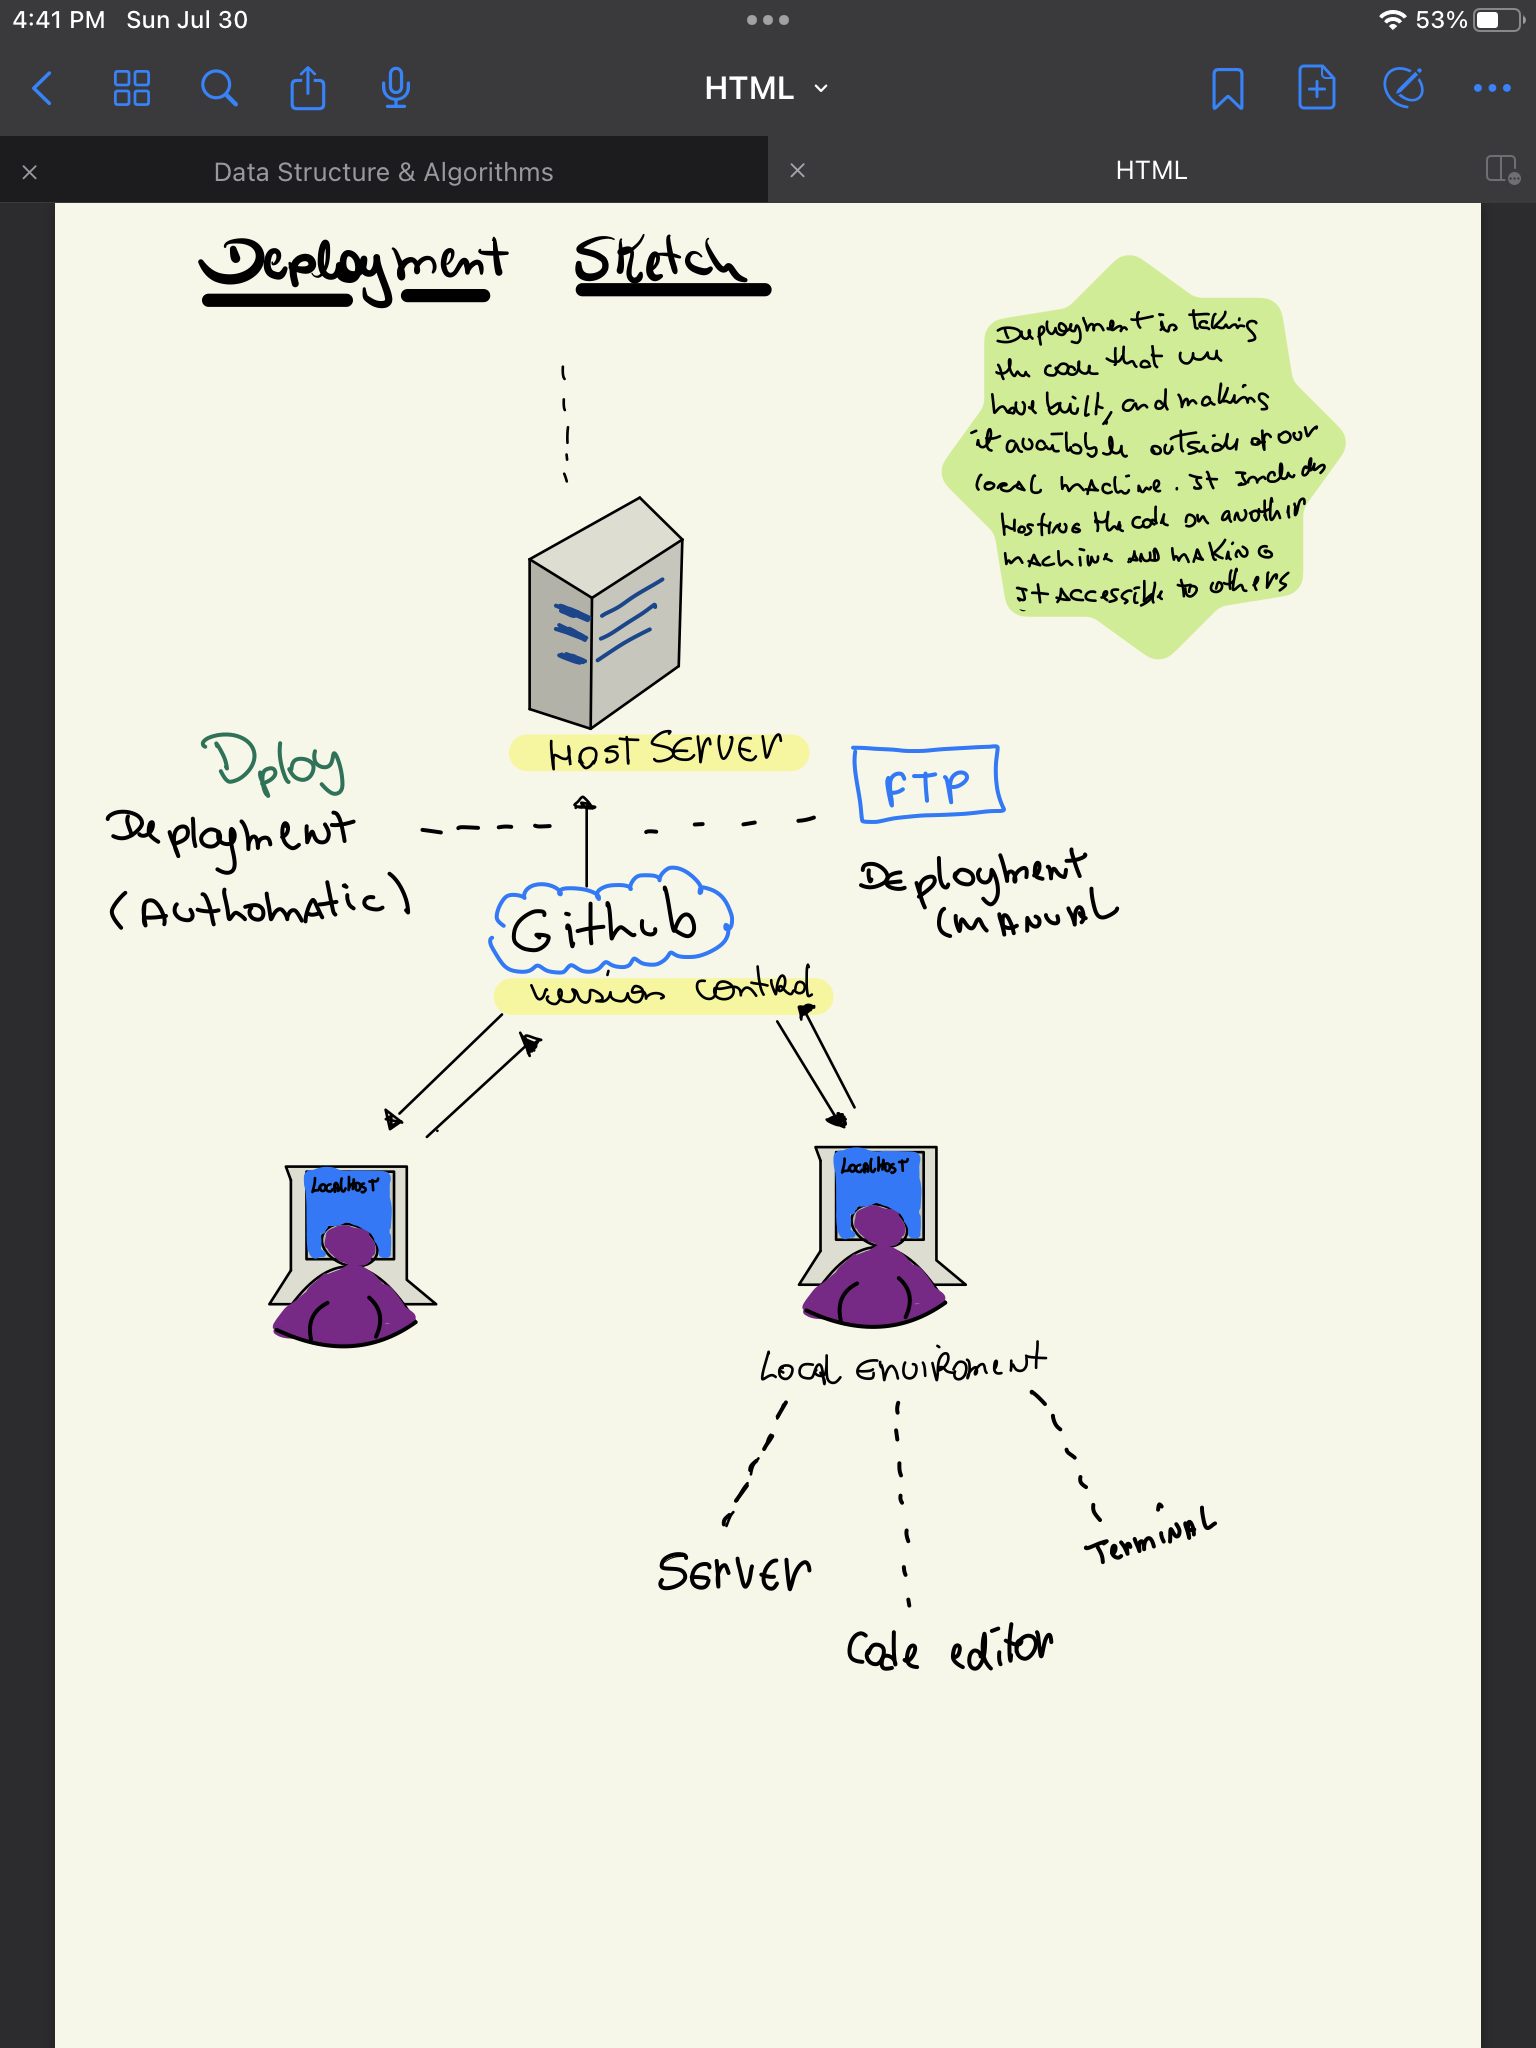 4:41 PM Sun Jul 30
53%
HTML
Data Structure & Algorithms
HTML
Deployment Sketch
Deployment is taking
the code that we
have built, and making
it available outside of our
local machine. It Includes
Hosting the code on another
machine and making
It accessible to others
HOST SERVER
Dploy
FTP
Deployment
(Authomatic)
Deployment
(MANUAL
Github
version control
LocalHost
LocalHost
Local Enviroment
Server
Terminal
Code editor